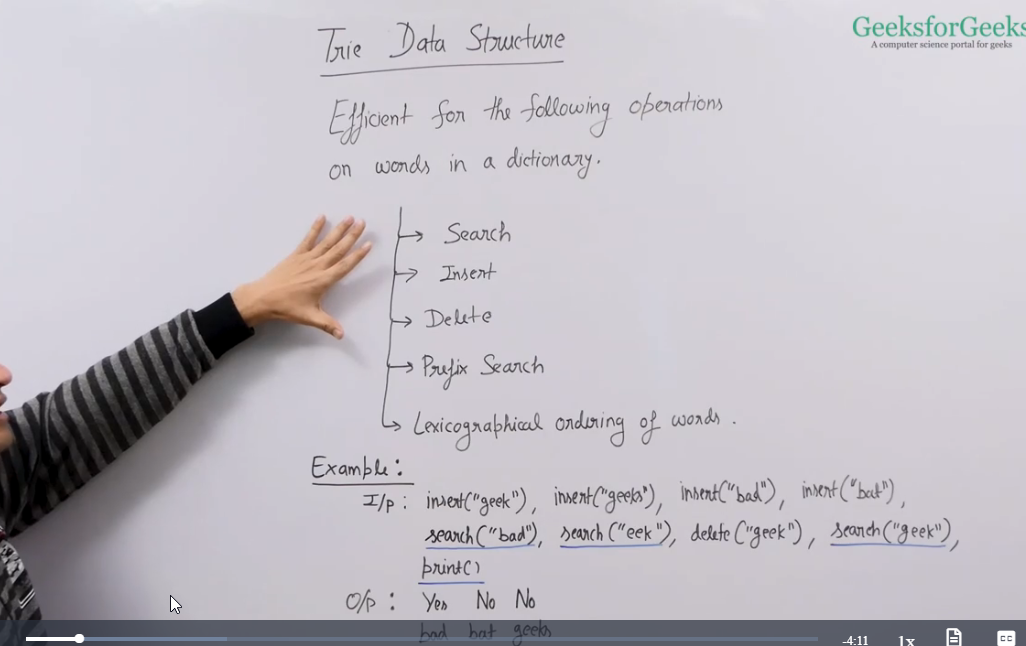 GeeksforGeeks
A computer science portal for geeks
Trie Data Structure
Efficient for the following operations
on words in a dictionary.
Search
Insert
Delete
Prefix Search
Lexicographical ordering of words.
Example:
I/p: insert("geek"), insert("geeks"), insert("bad"), insert("bat"),
search("bad"), search("eek"), delete("geek"), search("geek"),
print()
O/p: Yes No No
bad bat geeks
-4:11 1x CC